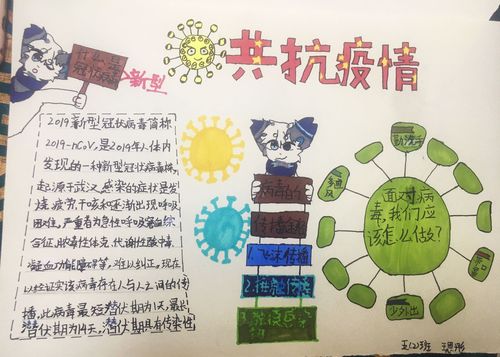 共抗疫情
什么是
冠状病毒
新型
2019新型冠状病毒简称
2019-nCoV,是2019年人体内
发现的一种新型冠状病毒株,
起源于武汉,感染的症状是发
烧,疲劳,干咳和逐渐出现呼吸
困难,严重者为急性呼吸窘迫综
合征,脓毒性休克,代谢性酸中毒,
凝血功能障碍等,难以纠正,现在
以经证实该病毒存在人与人之间的传
播,此病毒最短潜伏期为1天,最长
潜伏期为14天,潜伏期具有传染性
病毒的
传播途径
1.飞沫传播
2.接触传播
3.
面对病
毒,我们应
该怎么做?
勤洗手
多通风
戴口罩
少外出
五(2)班